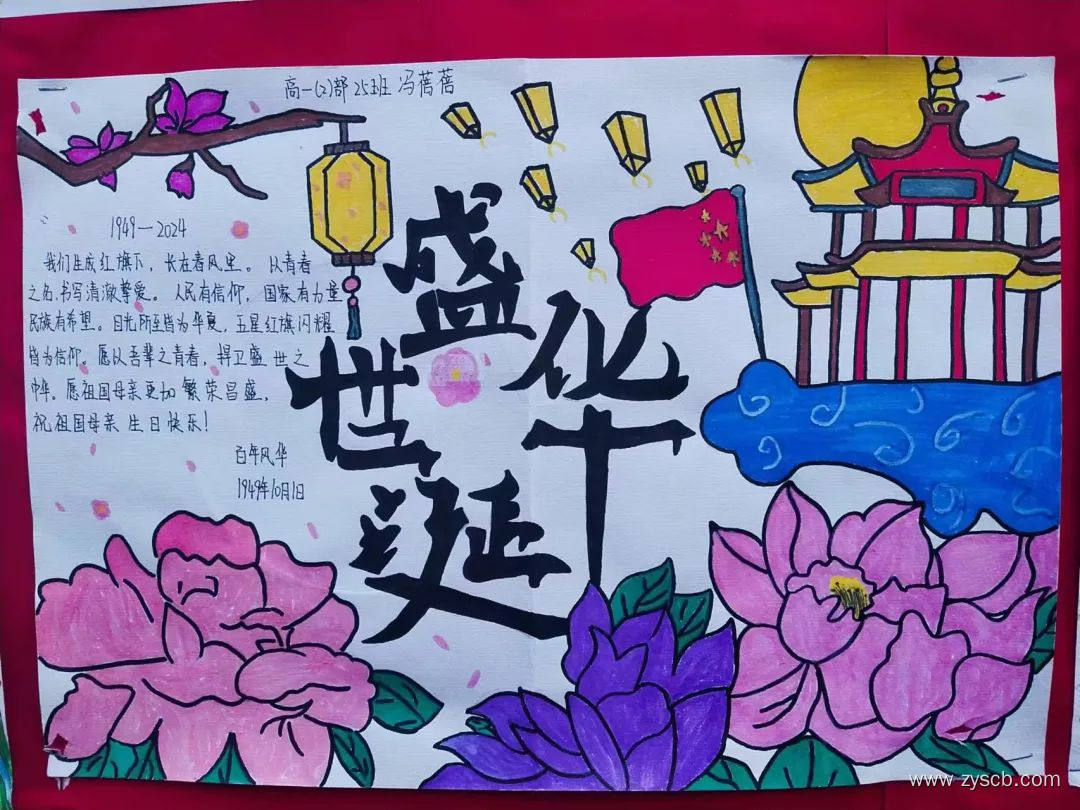 高一(2)部 25班 冯蓓蓓
1949—2024
我们生成红旗下，长在春风里。从青春
之名，书写清澈挚爱。人民有信仰，国家有力量
民族有希望。目光所至皆为华夏，五星红旗闪耀
皆为信仰。愿从吾辈之青春，捍卫盛世之
中华。愿祖国母亲更加繁荣昌盛，
祝祖国母亲生日快乐！
百年风华
1949年10月1日
盛世华诞
www.zyscb.com